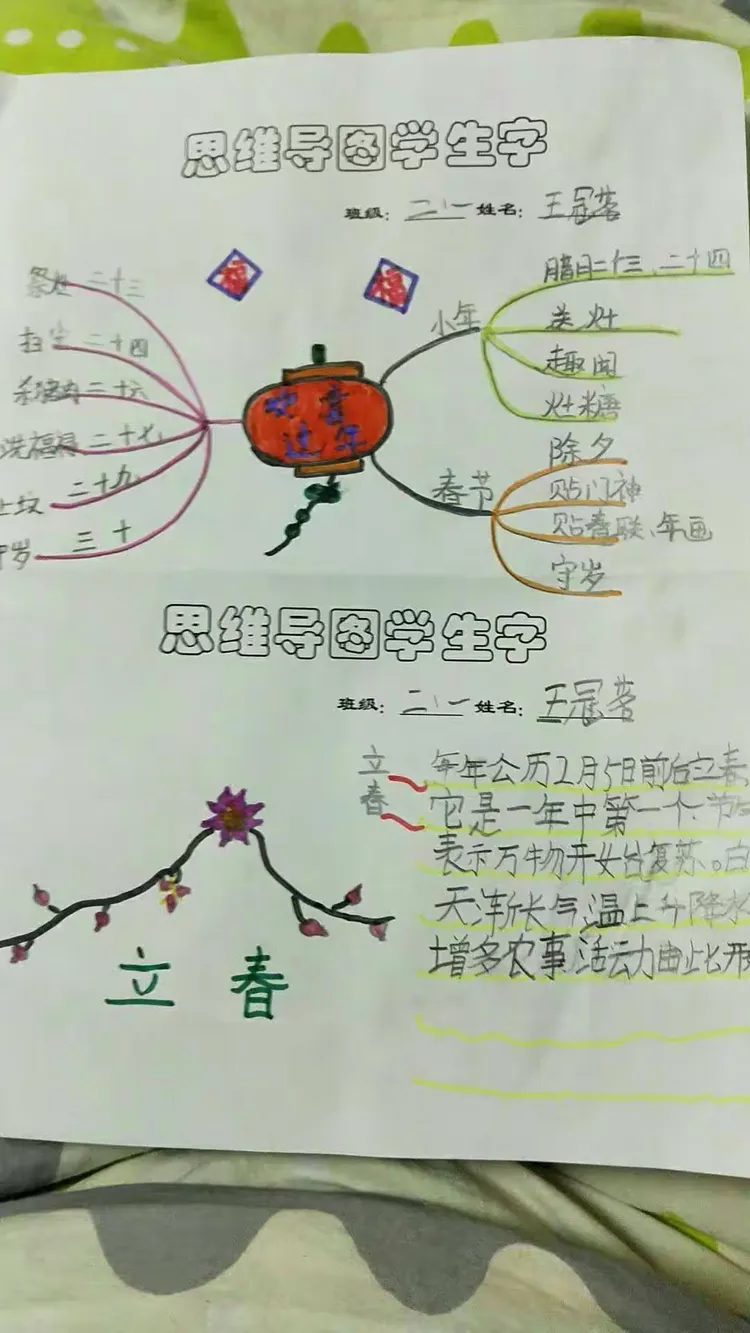 思维导图学生字
班级: 二、一 姓名: 王冠蓉
福 福
祭灶 二十三
扫尘 二十四
杀猪肉 二十六
洗福禄 二十七
上坟 二十九
守岁 三十
欢喜
过年
小年
腊月二十三、二十四
送灶
趣闻
灶糖
春节
除夕
贴门神
贴春联、年画
守岁
思维导图学生字
班级: 二、一 姓名: 王冠蓉
立春
每年公历2月5日前后立春,
它是一年中第一个节
表示万物开始复苏。白
天渐长气温上升降水
增多农事活动由此开
立春